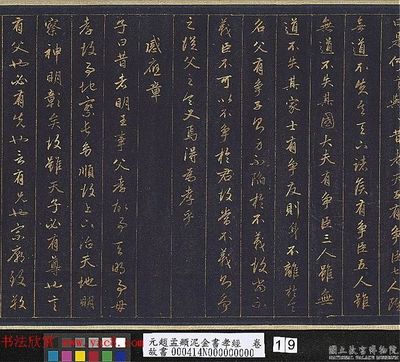 曰是何言與
無道不失天下諸侯有爭臣五人雖
無道不失其國大夫有爭臣三人雖無
道不失其家士有爭友則身不離於
名父有爭子則身不陷於不義故當不
義臣不可以不爭於君故當不義則爭
之從父之令又焉得為孝乎
感應章
子曰昔者明王事父孝故事天明事母
孝故事地察長幼順故上下治天地明
察神明彰矣故雖天子必有尊也言
有父也必有先也言有兄也宗廟致敬
书法欣赏 www.yac8.com
元趙孟頫泥金書孝經 卷
故書 000414N000000000
19
國立故宮博物院